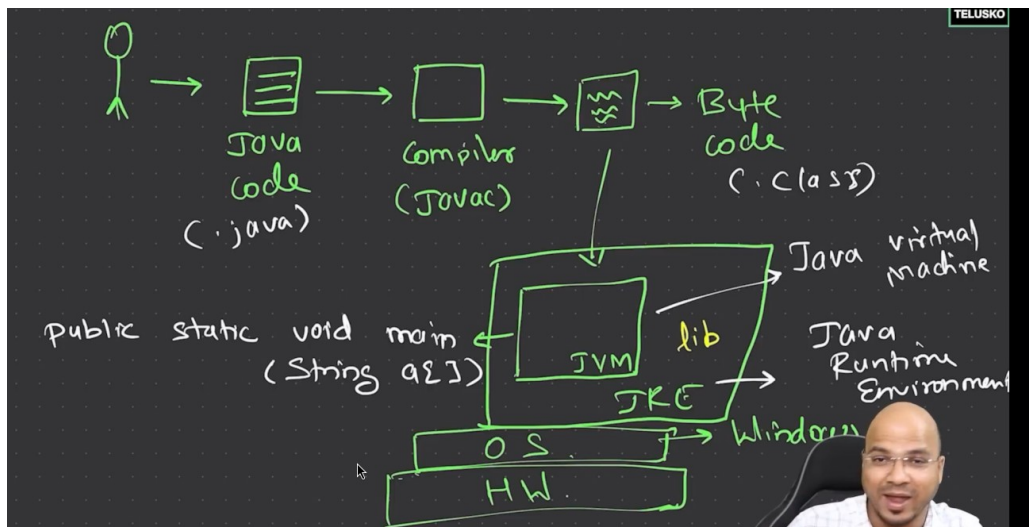 TELUSKO
Java
code
(.java)
Compiler
(Javac)
Byte
code
(.class)
Java virtual
machine
public static void main
(String a[])
lib
JVM
JRE
Java
Runtime
Environment
OS.
Windows
HW.